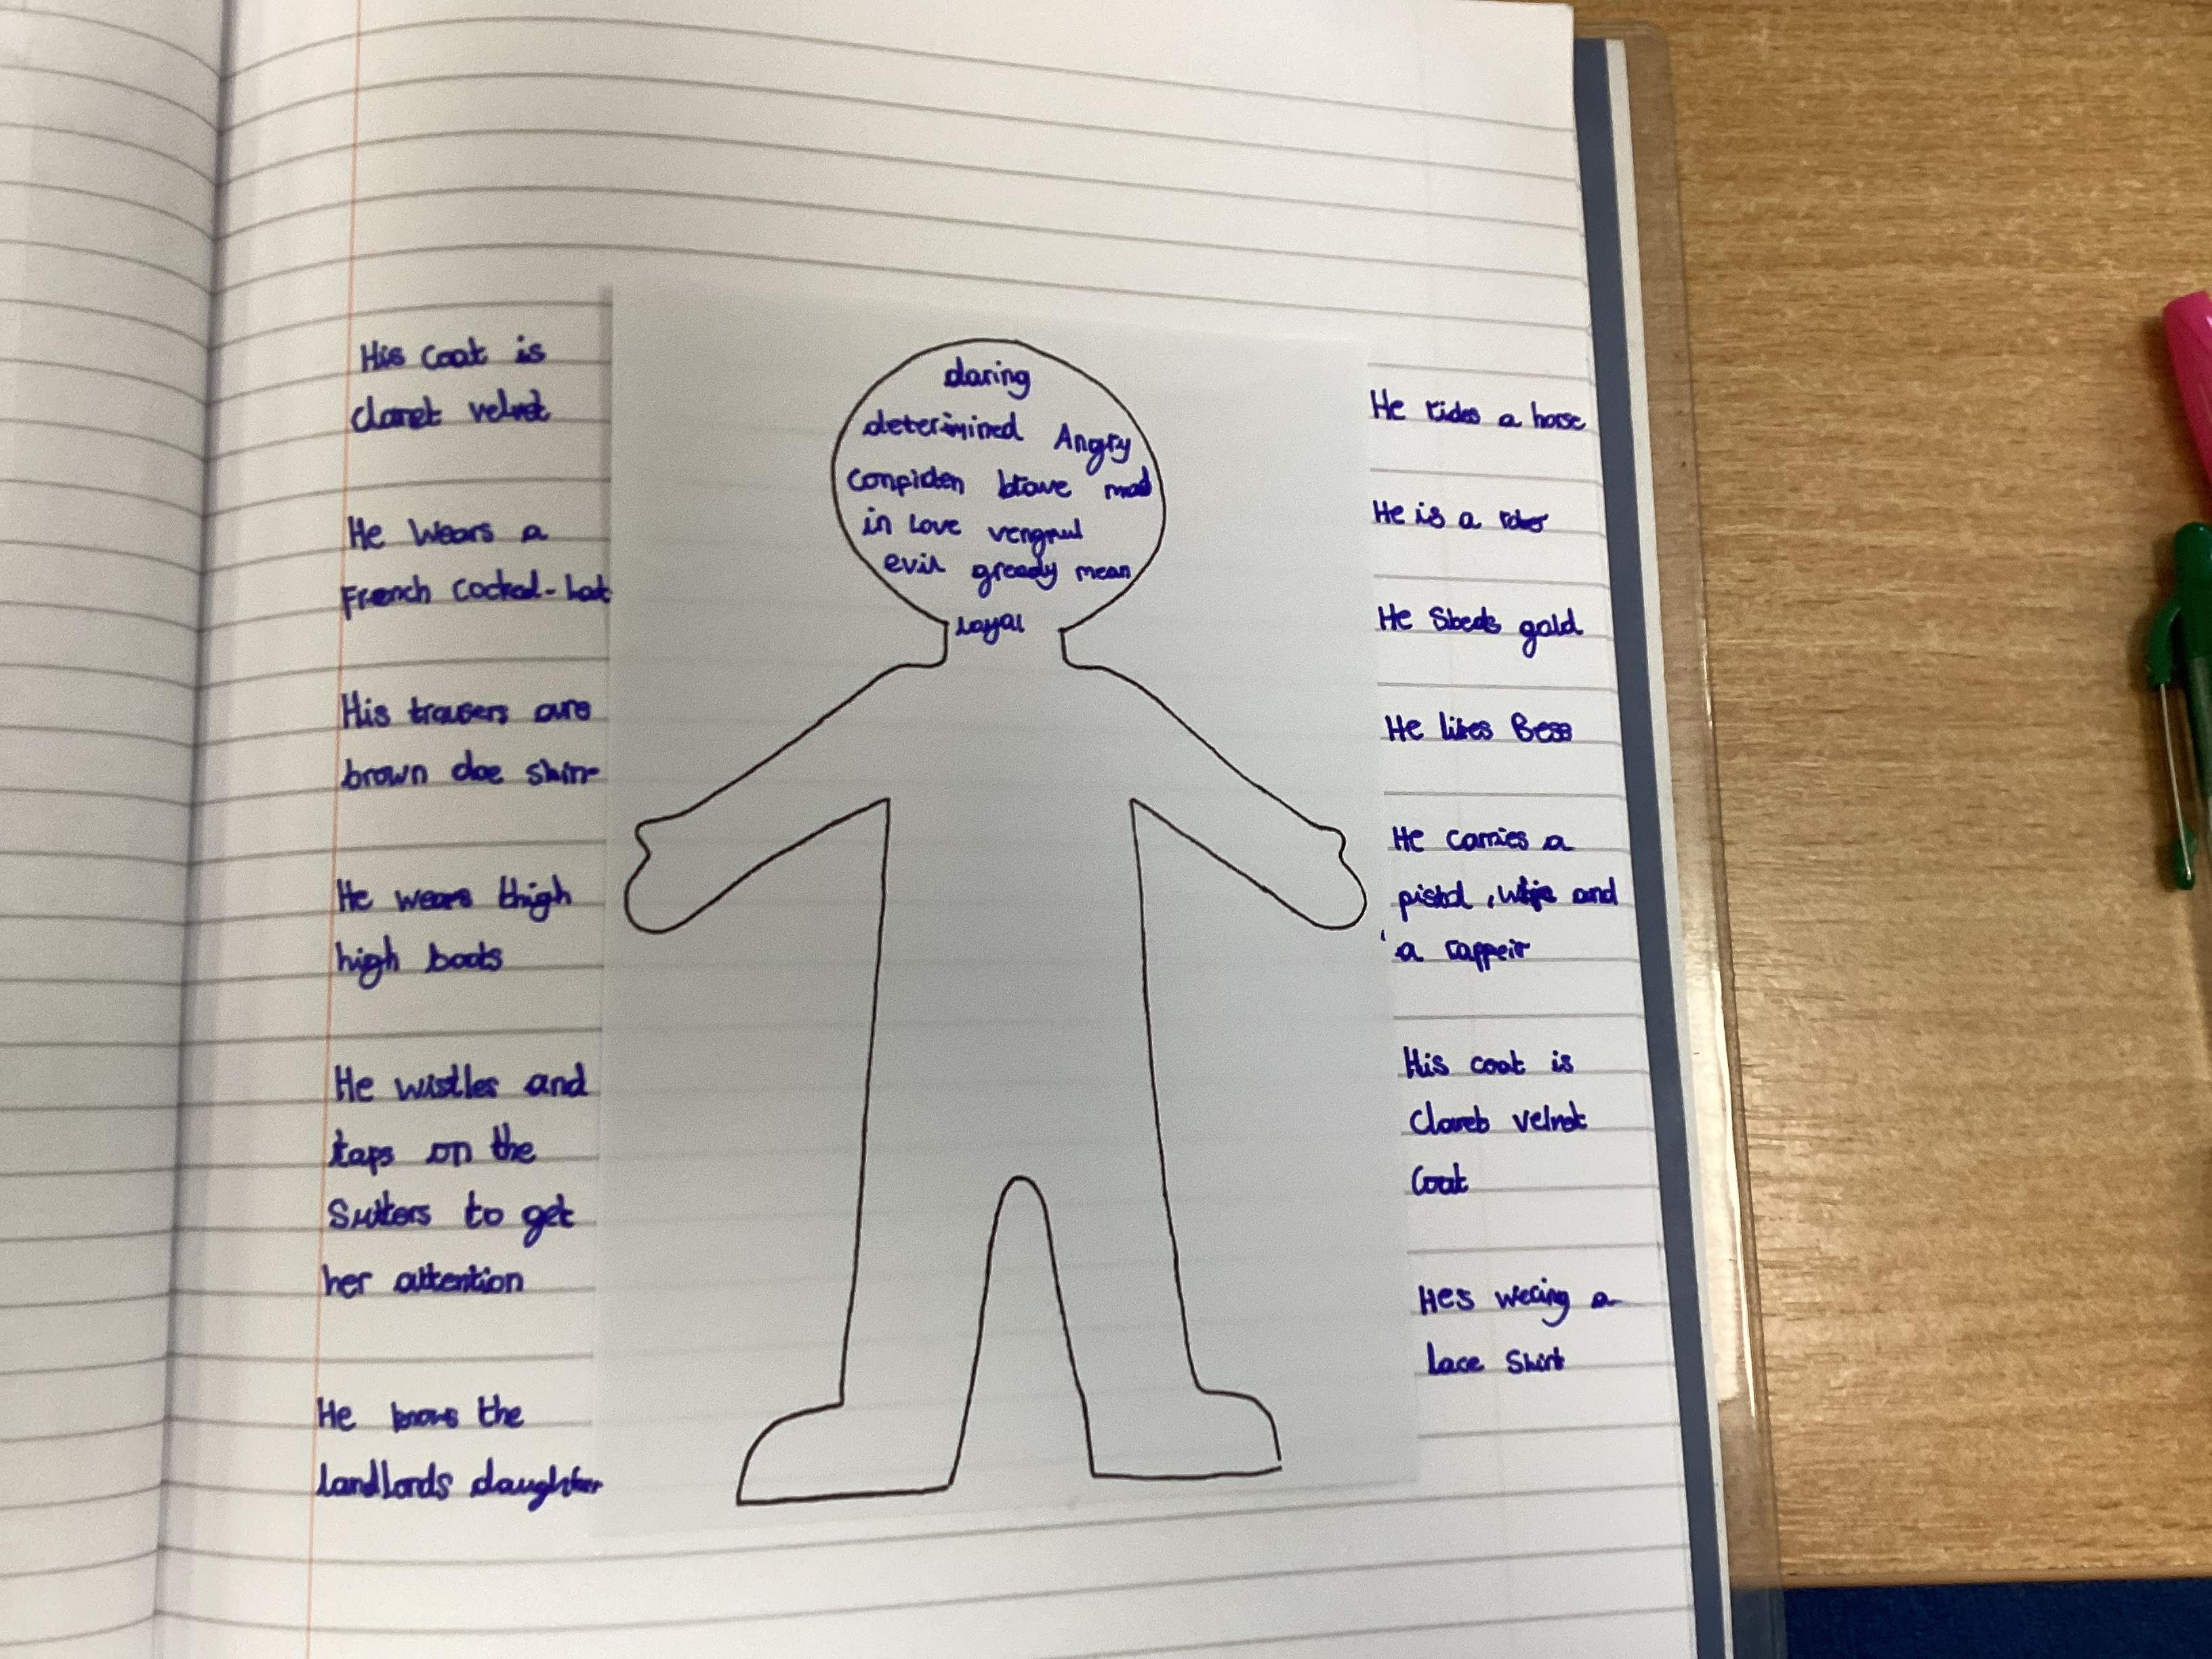 His coat is
claret velvet
He wears a
French cocked-hat
His trausers are
brown doe skin
He wears thigh
high boots
He wistles and
taps on the
Sutters to get
her attention
He knows the
landlords daughter
daring
determined Angry
Confiden brave mad
in love vengful
evil gready mean
Loyal
He rides a horse
He is a rober
He Steals gold
He likes Bess
He carries a
pistol, and
a rappeir
His coat is
Claret velvet
Coat
Hes wearing a
lace Shirt